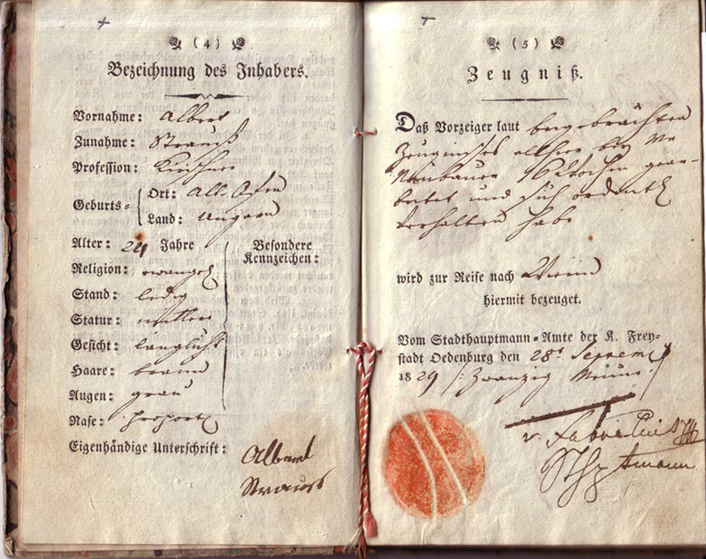 (4)
Bezeichnung des Inhabers.
Vorname: Albert
Zuname: Strauß
Profession:
Geburts= Ort:
Land: Ungarn
Alter: 24 Jahre
Besondere Kennzeichen:
Religion: evangel
Stand: ledig
Statur: mittlere
Gesicht: länglicht
Haare: braun
Augen: grau
Nase: proport
Eigenhändige Unterschrift: Albert
Strauss
(5)
Zeugniß.
Daß Vorzeiger laut beygebrachten
Zeugnisses allhier bey
Neubauer 16 Wochen gear-
beitet und sich ordentl
verhalten habe
wird zur Reise nach Wien
hiermit bezeuget.
Vom Stadthauptmann=Amte der K. Frey=
stadt Oedenburg den 28t Septemb
1829 /: Zwanzig Neun :/
v.
Sthptmann